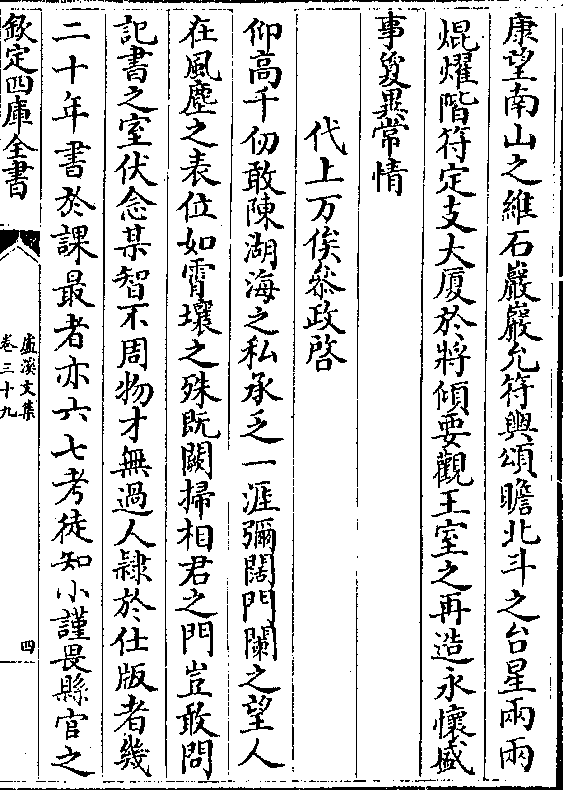 康望南山之維石巖巖允符輿頌瞻北斗之台星兩兩
焜燿階符定支大厦於將傾要觀王室之再造永懷盛
事夐異常情
代上万俟叅政啓
仰高千仞敢陳湖海之私承乏一涯彌闊門闌之望人
在風塵之表位如霄壤之殊既闕掃相君之門豈敢問
記書之室伏念某智不周物才無過人隷於仕版者幾
二十年書於課最者亦六七考徒知小謹畏縣官之
欽定四庫全書
盧溪文集
卷三十九
四